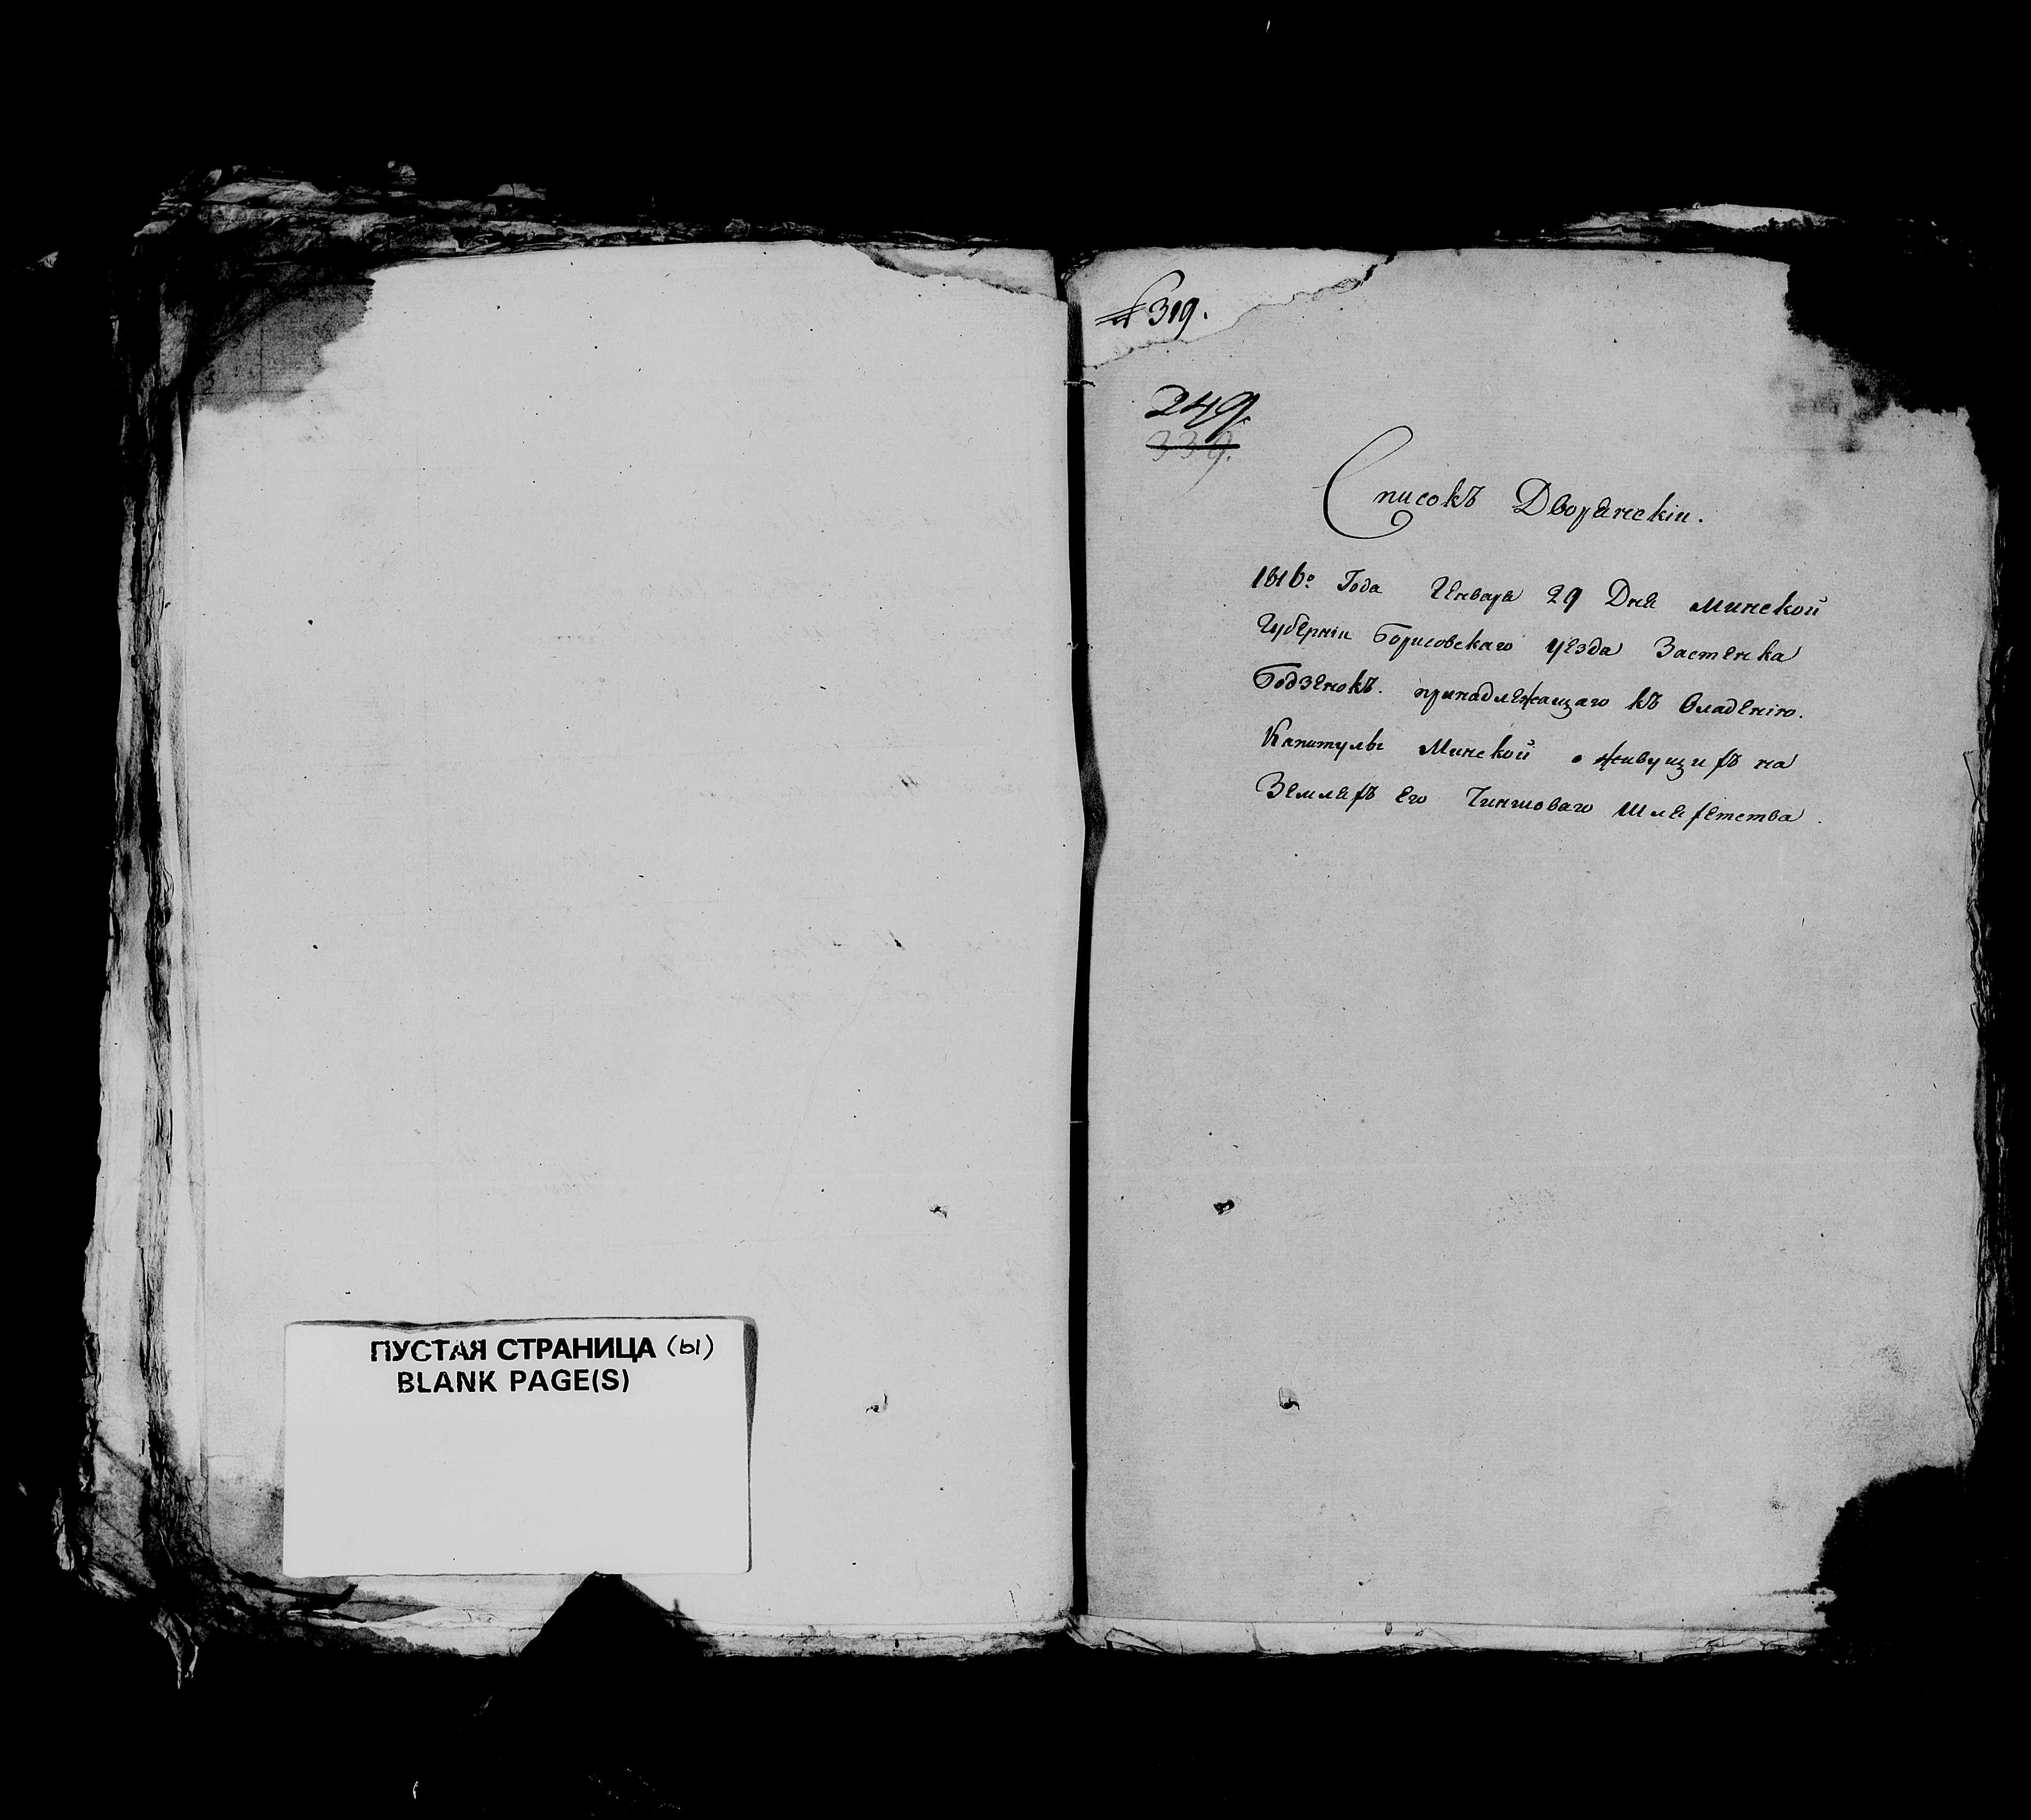 ПУСТАЯ СТРАНИЦА (ы)
BLANK PAGE(S)
№ 319.
249.
339.
Списокъ Дворянскіи.
1816го Года Генваря 29 Дня Минской
Губерніи Борисовскаго уезда Застенка
Бодзенокъ. принадлежащаго къ Владенію.
Капитулы Минской о живущихъ на
Земляхъ Его Чиншоваго Шляхетства.